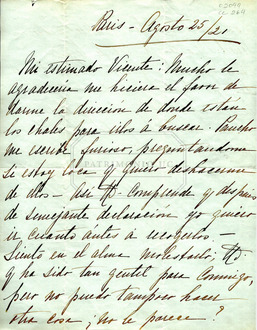 Paris - Agosto 25/21
Mi estimado Vicente: Mucho le
agradecería me hiciera el favor de
darme la dirección de donde están
los chales para irlos a buscar. Pancho
me escribe furioso, preguntándome
si estoy loca y quiero deshacerme
de ellos - Así Ud. comprende q. después
de semejante declaración yo quiero
ir cuanto antes a recogerlos -
Siento en el alma molestarlo, Ud.
q. ha sido tan gentil para conmigo,
pero no puedo tampoco hacer
otra cosa ¿No le parece?